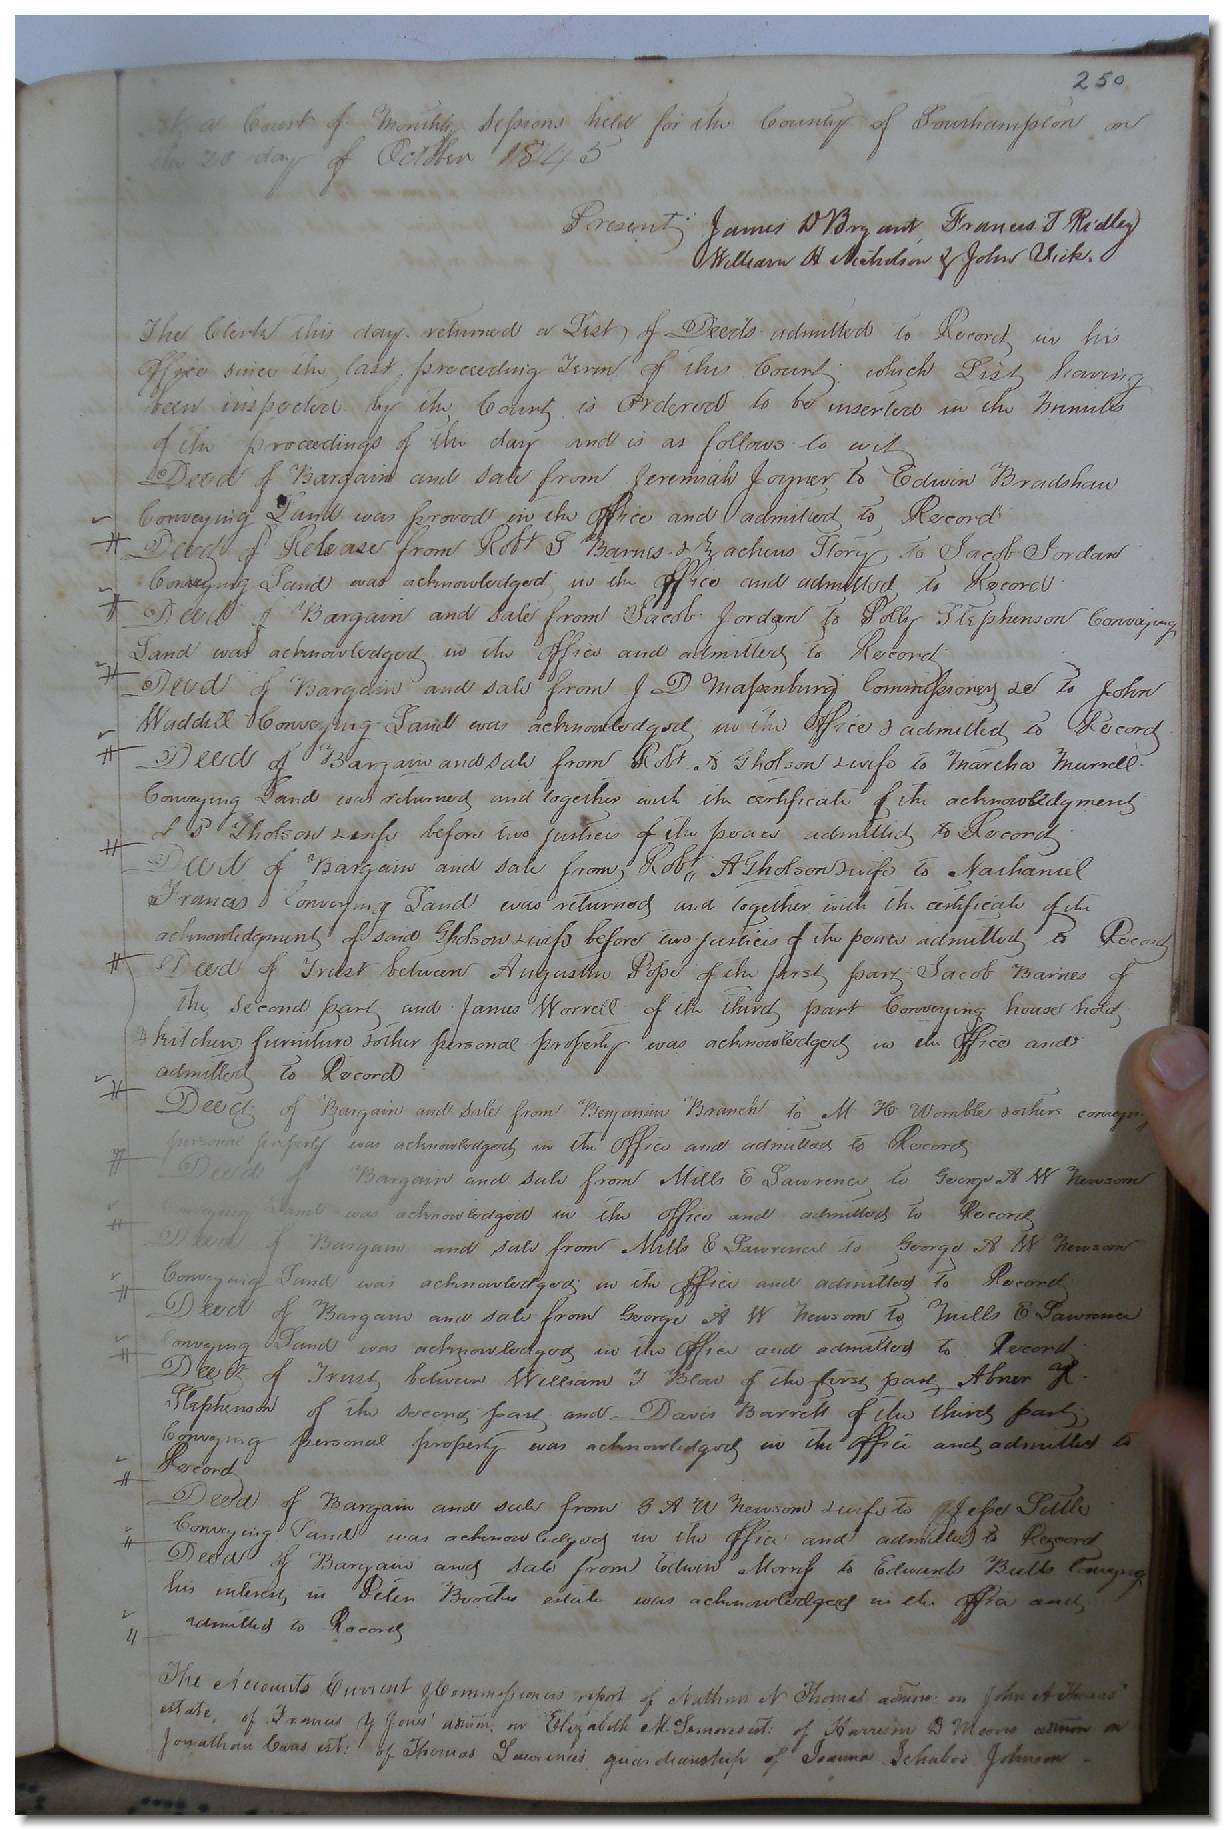 250
At a Court of Monthly Sessions held for the County of Southampton on
the 20 day of October 1845
Present: James D Bryant Francis T Ridley
William H Nicholson & John Vick.
The Clerk this day returned a List of Deeds admitted to Record in his
Office since the last proceeding Term of this Court which List having
been inspected by the Court is Ordered to be inserted in the Minutes
of the proceedings of the day and is as follows to wit
Deed of Bargain and sale from Jeremiah Joyner to Edwin Bradshaw
Conveying Land was proved in the Office and admitted to Record
Deed of Release from Robt T Barnes & Zacheus Flory to Jacob Jordan
Conveying Land was acknowledged in the Office and admitted to Record
Deed of Bargain and sale from Jacob Jordan to Polly Stephenson Conveying
Land was acknowledged in the Office and admitted to Record
Deed of Bargain and sale from J D Massenburg Commissioner &c to John
Waddill Conveying Land was acknowledged in the Office & admitted to Record
Deed of Bargain and sale from Robt A Gholson & wife to Martha Murrell
Conveying Land was returned and together with the certificate of the acknowledgment
of Gholson & wife before two justices of the peace admitted to Record
Deed of Bargain and sale from Robt A Gholson & wife to Nathaniel
Francis Conveying Land was returned and together with the certificate of the
acknowledgment of said Gholson & wife before two justices of the peace admitted to Record
Deed of Trust between Augustin Pope of the first part Jacob Barnes of
the second part and James Worrell of the third part Conveying house hold
& kitchen furniture & other personal property was acknowledged in the Office and
admitted to Record
Deed of Bargain and sale from Benjamin Branch to M H Womble & others conveying
personal property was acknowledged in the Office and admitted to Record
Deed of Bargain and sale from Mills E Lawrence to George A W Newsom
Conveying Land was acknowledged in the Office and admitted to Record
Deed of Bargain and sale from Mills E Lawrence to George A W Newsom
Conveying Land was acknowledged in the Office and admitted to Record
Deed of Bargain and sale from George A W Newsom to Mills E Lawrence
Conveying Land was acknowledged in the Office and admitted to Record
Deed of Trust between William T Blow of the first part Abner
Stephenson of the second part and Davis Barrett of the third part
Conveying personal property was acknowledged in the Office and admitted to
Record
Deed of Bargain and sale from G A W Newsom & wife to Jesse Little
Conveying Land was acknowledged in the Office and admitted to Record
Deed of Bargain and sale from Edwin Morriss to Edwards Butts Conveying
his interest in Booths estate was acknowledged in the Office and
admitted to Record
The Accounts Current & Commissioners report of Nathan N Thomas admr. on John A Thomas'
estate, of Francis Y Jones' admr. on Elizabeth M. est: of Harrison D Moore admr on
Jonathan est: of Thomas Lawrence's guardianship of Joanna Johnson